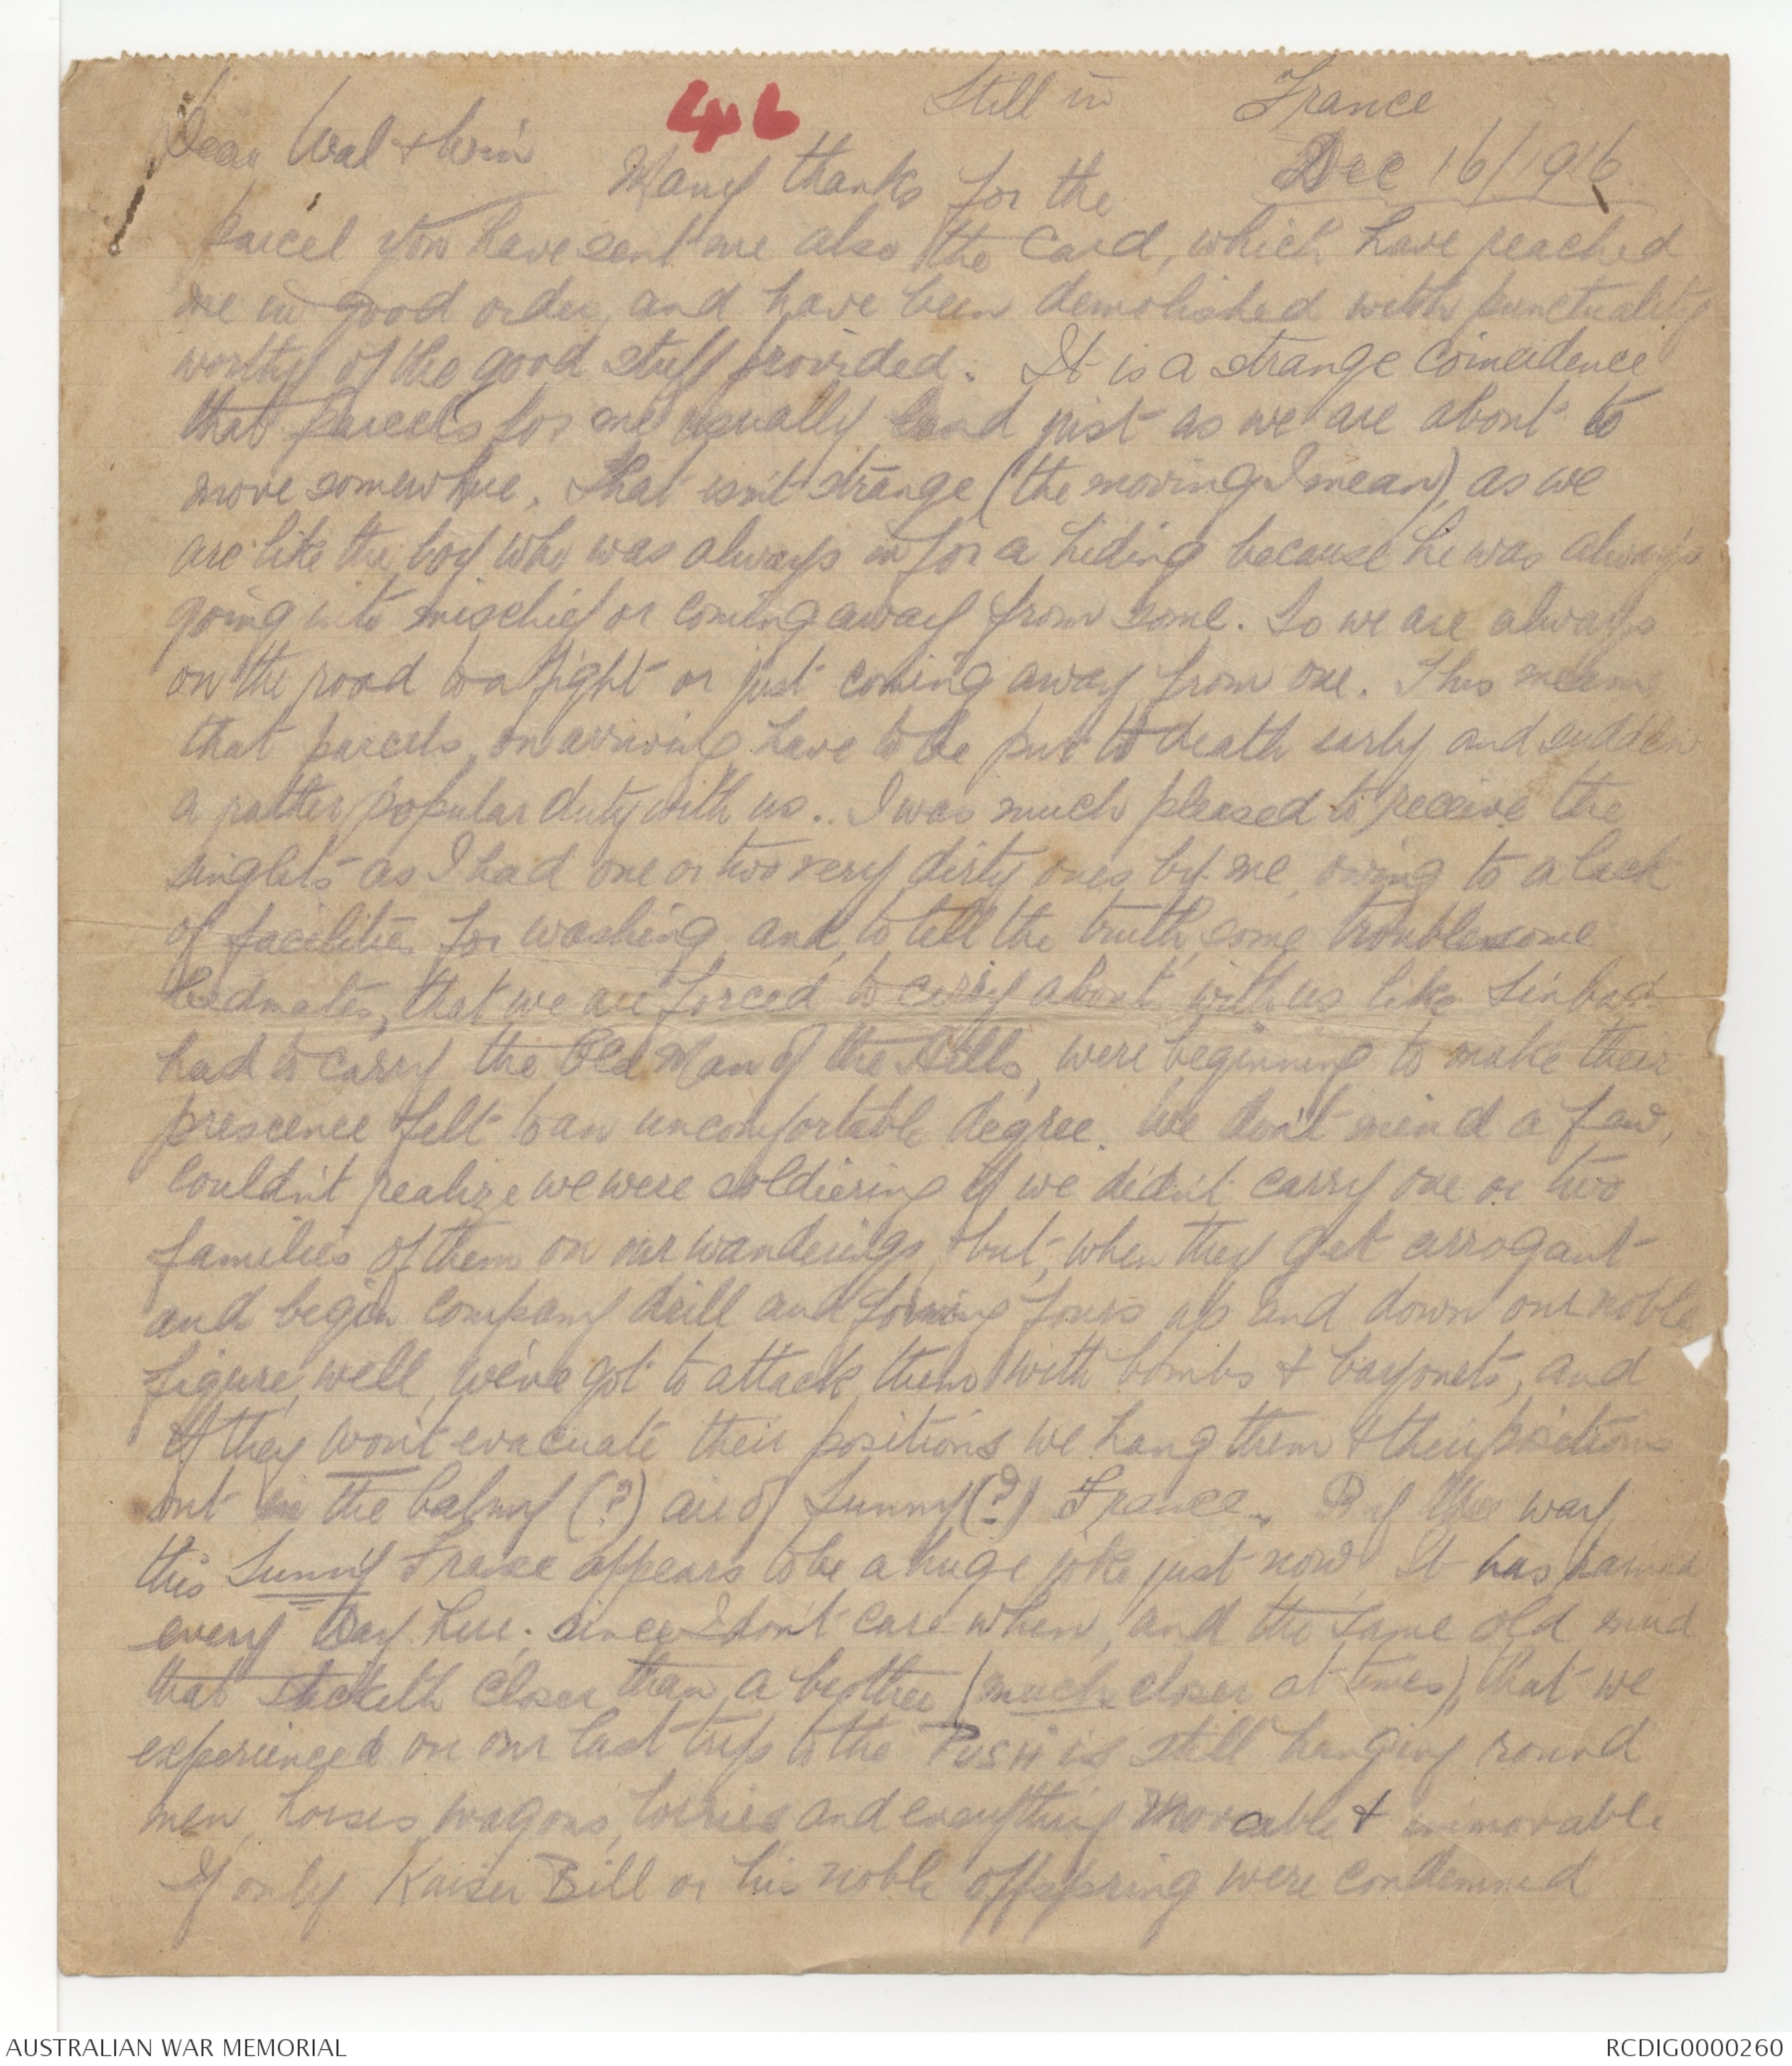 Still in France
46
Dec 16/1916
Dear Wal & Win
Many thanks for the
parcel you have sent me also the card, which have reached
me in good order, and have been demolished with punctuality
worthy of the good stuff provided. It is a strange coincidence
that parcels for me usually land just as we are about to
move somewhere. That isn't strange (the moving I mean), as we
are like the boy who was always in for a hiding because he was always
going into mischief or coming away from some. So we are always
on the road to a fight or just coming away from one. This means
that parcels, on arriving, have to be put to death early and sudden
a rather popular duty with us.. I was much pleased to receive the
singlets as I had one or two very dirty ones by me, owing to a lack
of facilities for washing, and, to tell the truth, some troublesome
bedmates, that we are forced to carry about with us like Sinbad
had to carry the Old Man of the Hills, were beginning to make their
prescence felt to an uncomfortable degree. We don't mind a few,
couldn't realize we were soldiering if we didn't carry one or two
families of them on our wanderings, but, when they get arrogant
and begin company drill and forming fours up and down our noble
figure, well, we've got to attack them with bombs & bayonets, and
if they won't evacuate their positions we hang them & their positions
out in the balmy (?) air of Sunny (?) France. By the way
this Sunny France appears to be a huge joke just now. It has rained
every day here since I don't care when, and the same old mud
that sticketh closer than a brother (much closer at times), that we
experienced on our last trip to the PUSH is still hanging round
men, horses, wagons, lorries and everything movable & immovable
If only Kaiser Bill or his noble offspring were condemned
AUSTRALIAN WAR MEMORIAL
RCDIG0000260